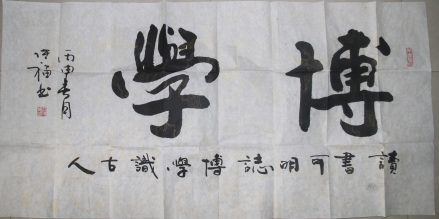 博學
讀書可明誌博學識古人
丙申春月
洪福书